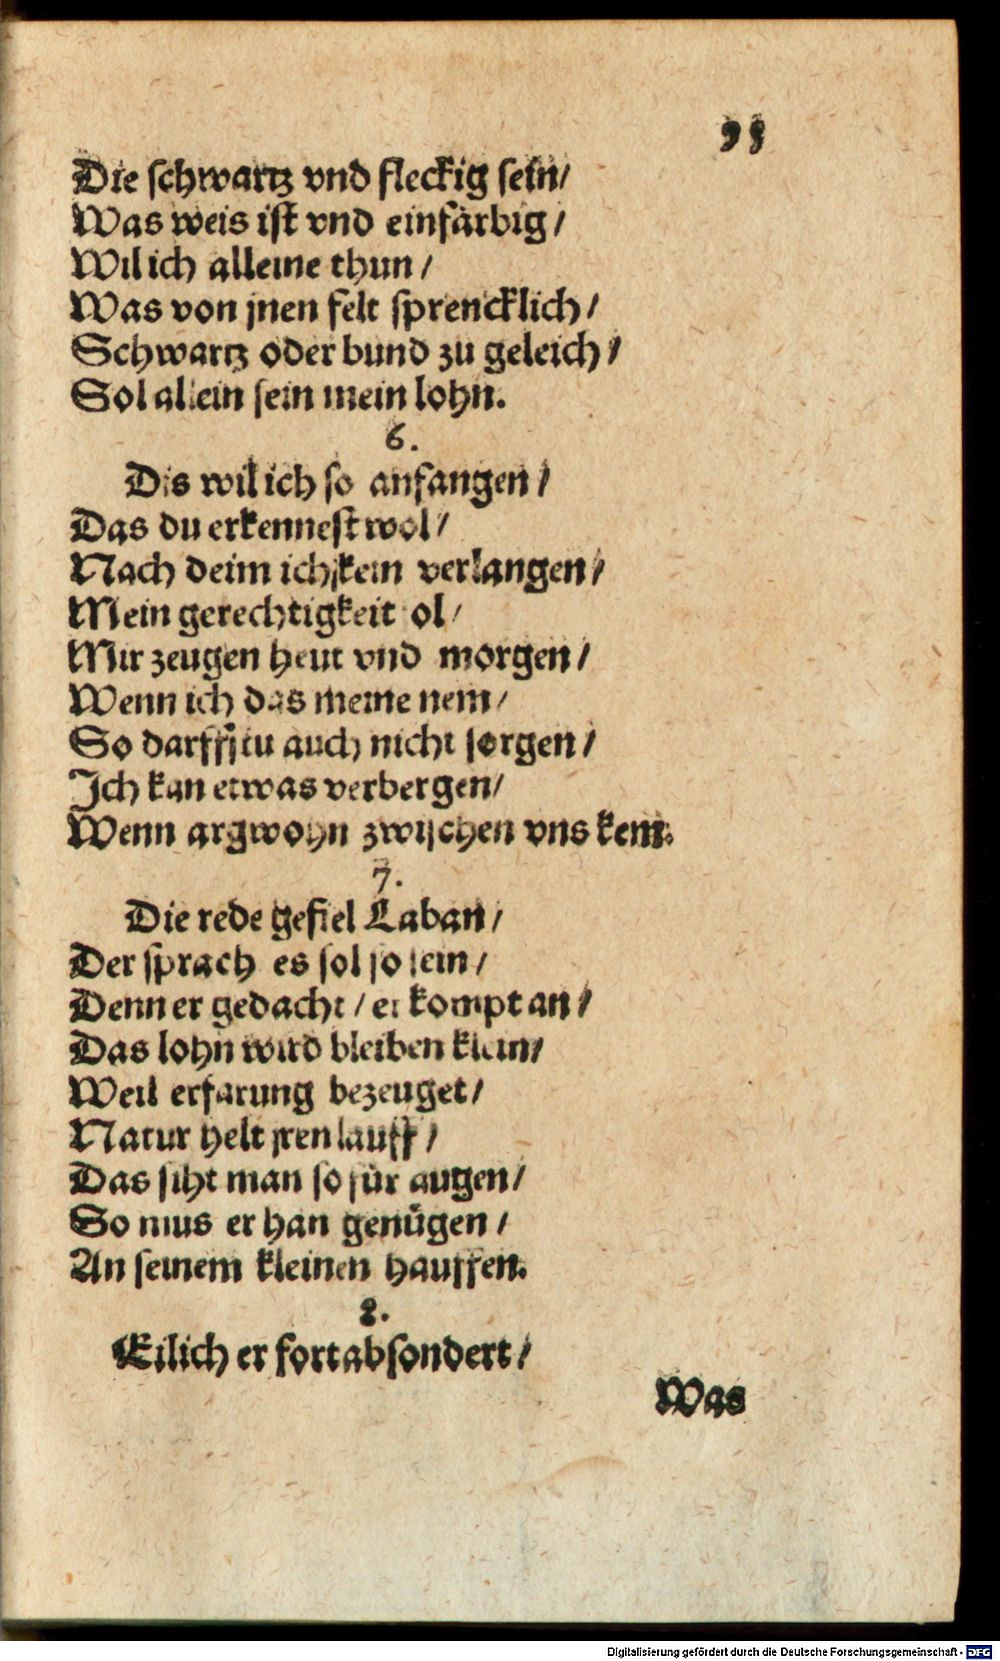 95
Die schwartz vnd fleckig sein/
Was weis ist vnd einfärbig/
Wil ich alleine thun/
Was von jnen felt sprencklich/
Schwartz oder bund zu geleich/
Sol allein sein mein lohn.
6.
Dis wil ich so anfangen/
Das du erkennest wol/
Nach deim ich kein verlangen/
Mein gerechtigkeit sol/
Mir zeugen heut vnd morgen/
Wenn ich das meine nem/
So darffstu auch nicht sorgen/
Ich kan etwas verbergen/
Wenn argwohn zwischen vns kem.
7.
Die rede gefiel Laban/
Der sprach es sol so sein/
Denn er gedacht/ er kompt an/
Das lohn wird bleiben klein/
Weil erfarung bezeuget/
Natur helt jren lauff/
Das siht man so für augen/
So mus er han genügen/
An seinem kleinen hauffen.
8.
Eilich er fort absondert/
Was
Digitalisierung gefördert durch die Deutsche Forschungsgemeinschaft - DFG